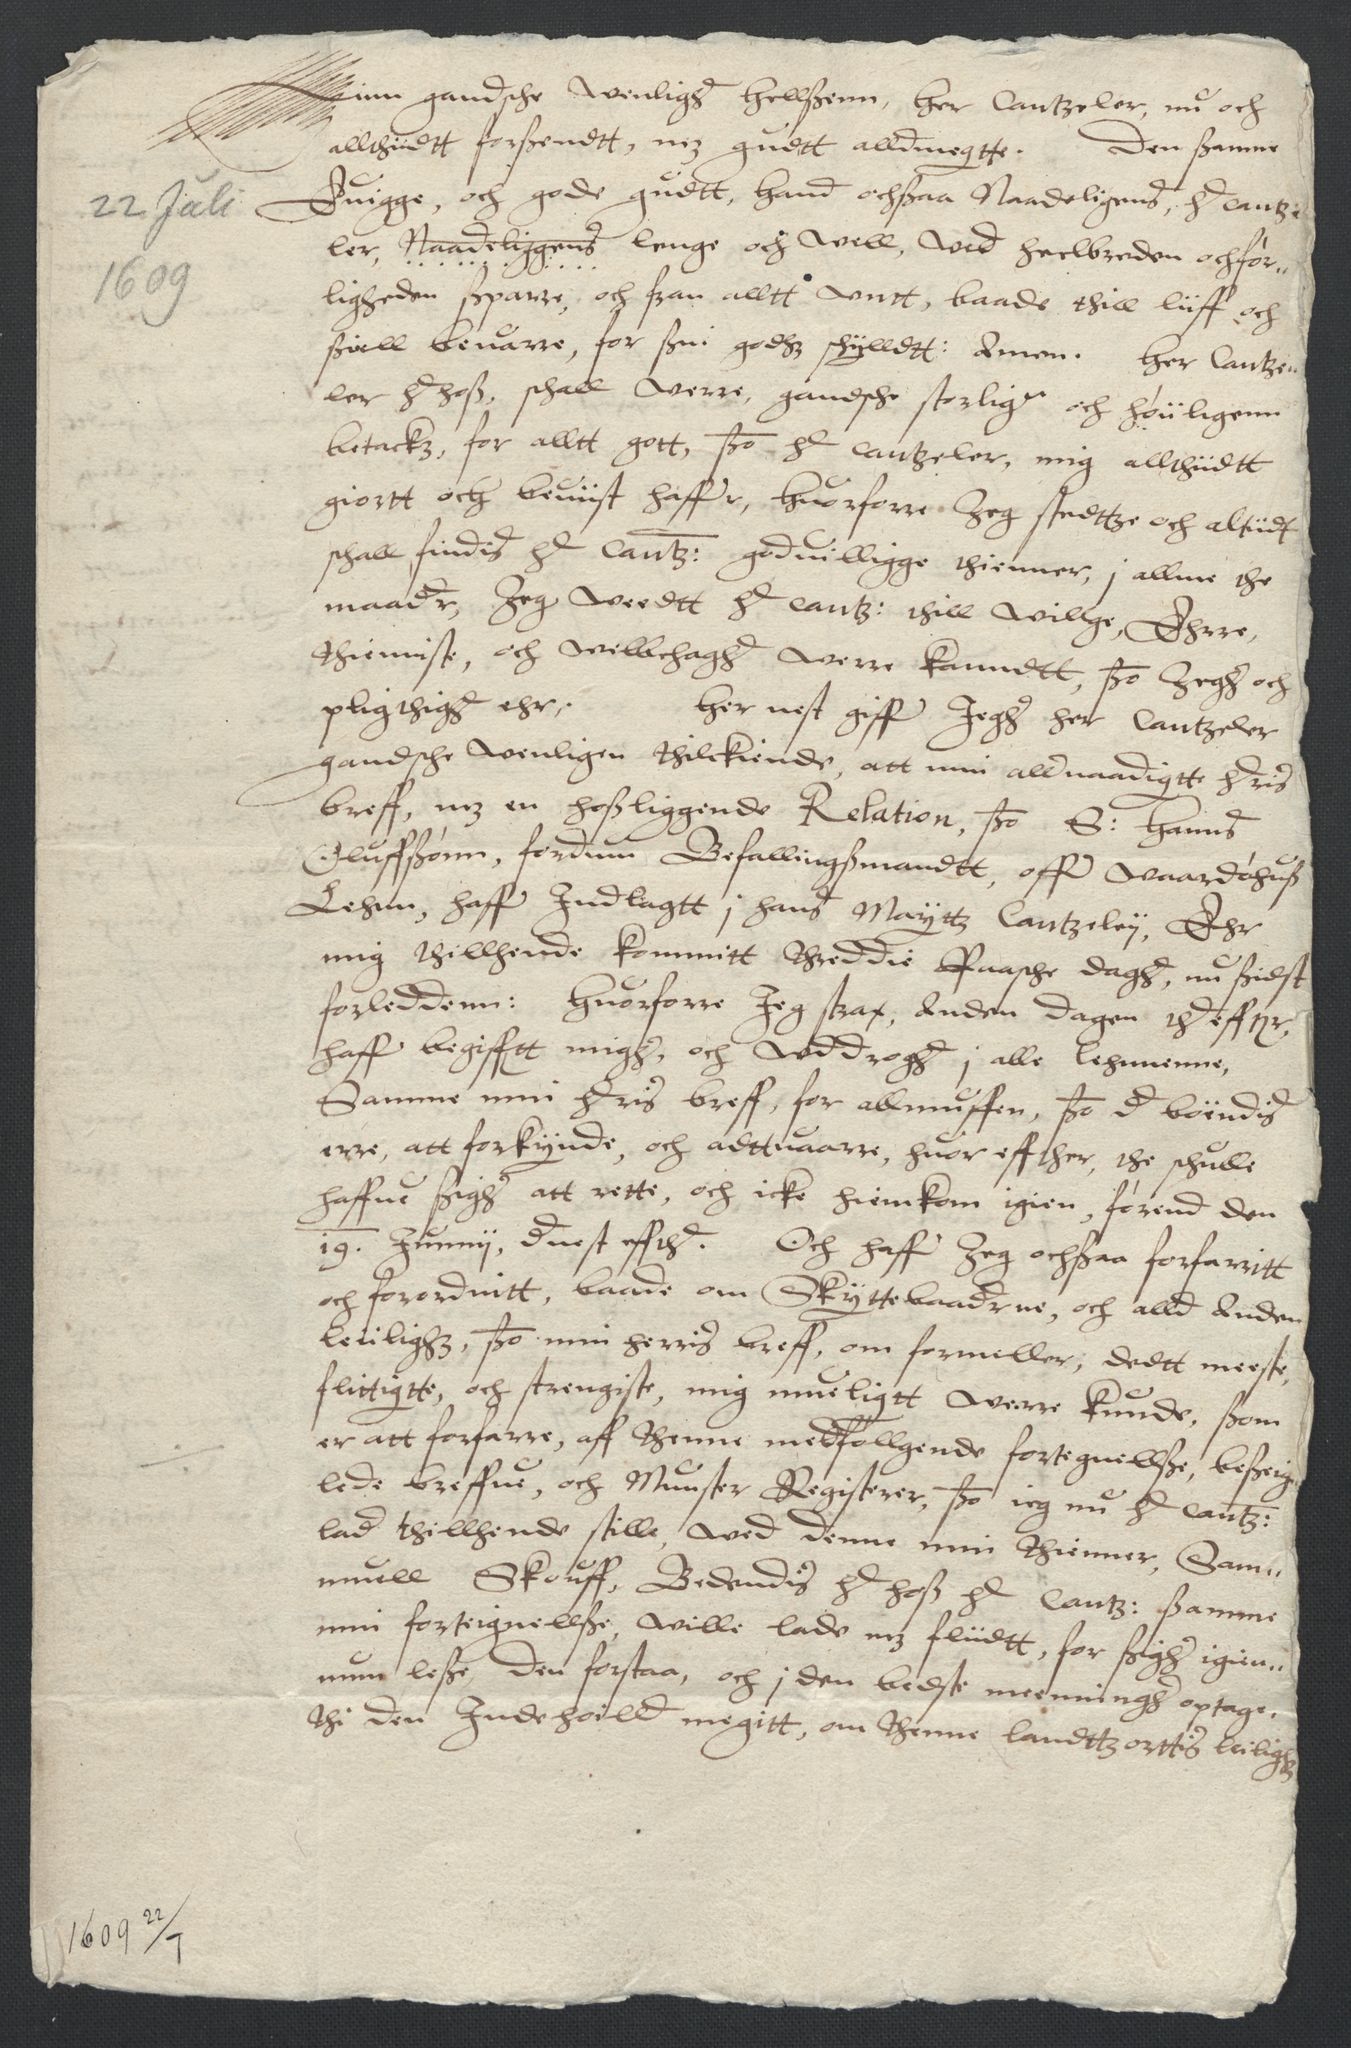 Minn gandsche wenligh hellßenn, her Cantzeler, nu och
allthiidtt forßendtt, mz gudtt alldmegtte. Den ßamme
22 Juli
1609
Euigge, och gode gudtt, hand ochßaa Naadeligens, hd Cantze
ler, Naadeliggens lenge och well, wed heelbreden och för„
ligheden ßparre, och fran alltt wntt, baade thill liiff och
ßiell beuarre, for ßin godhz schylldtt: Amen. Her Cantze„
ler hd hoß, schall werre, gandsche storlig och höüligenn
betackz, for alltt gott, ßo hd Cantzeler, mig allthiidtt
giortt och beuiist haffr, huorforre Jeg stedtze och altiidt
schall findis hd Cantz: goduilligge thienner, j allme the
maadr, Jeg weedtt hd Cantz: thill willge, Ehrre,
thienniste, och welbehagh werre kanndtt, ßo Jegh och
pligthigh ehr. Her nest giff Jegh her Cantzeler
gandsche wenligen thilkiende, att min alldnaadigtte hris
breff, mz en hoßliggende Relation, ßo S: Hanns
Oluffßönn, fordum Befallingßmandtt, offr Waardöhuß
Lehnn, haffr Indlagtt j hans Mayttz Cantzeley, Ehr
mig thillhende kommitt threddie Paasche dagh, nu ßidst
forleddenn: Huorforre Jeg strax, anden dagen thd effter,
haffr begifftt migh, och wddrogh j alle lehnnenne,
Samme min hris breff, for allmuffen, ßo d böendis
erre, att forkynde, och adtuaarre, huor effther, the schulle
haffue ßigh att rette, och icke hiemkom igien, förend den
19. Junnij, dnest effthd. Och haffr Jeg ochßaa forfarritt
och forordnitt, baade om Skyttebaadrne, och alld anden
leiilighz, ßo min herris breff, om formeller, dedtt meeste,
flittigtte, och strengiste, mig mueligtt werre kunde, ßom
er att forfarre, aff thenne medföllgende fortegnellße, beßeig
lede breffue, och Munster Registerer, ßo ieg nu hd Cantz:
lad thillhende stille, wed denne min thienner, Sam„
muell Skouff, Bedendis hd hoß hd Cantz: ßamme
min forteignellße, wille lade mz fliidtt, for ßigh igien„
num leße, den forstaa, och j den bedste meeningh optage.
thi den Indehoilld megitt, om thenne landttz orttis leilighz
1609 22/7